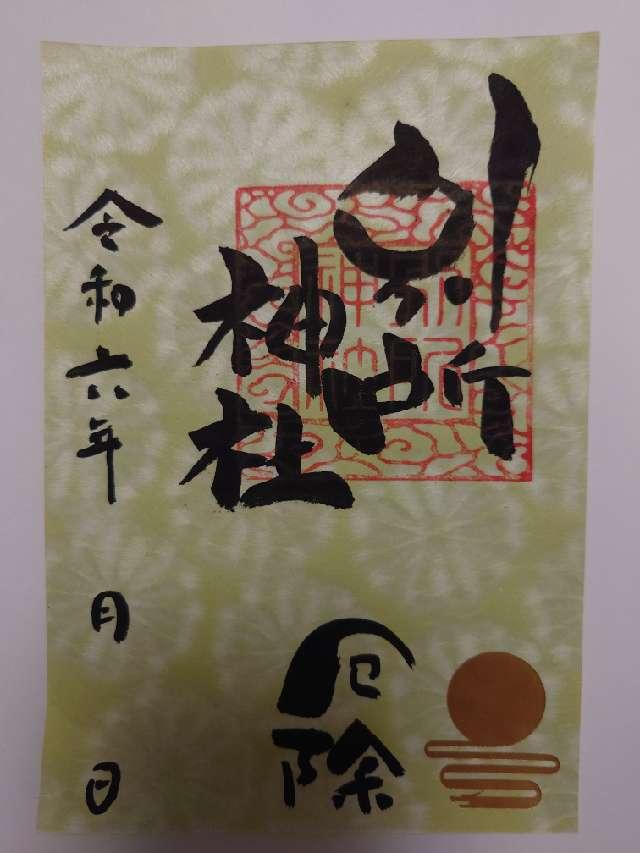 別所
神社
厄除
令和六年 月 日